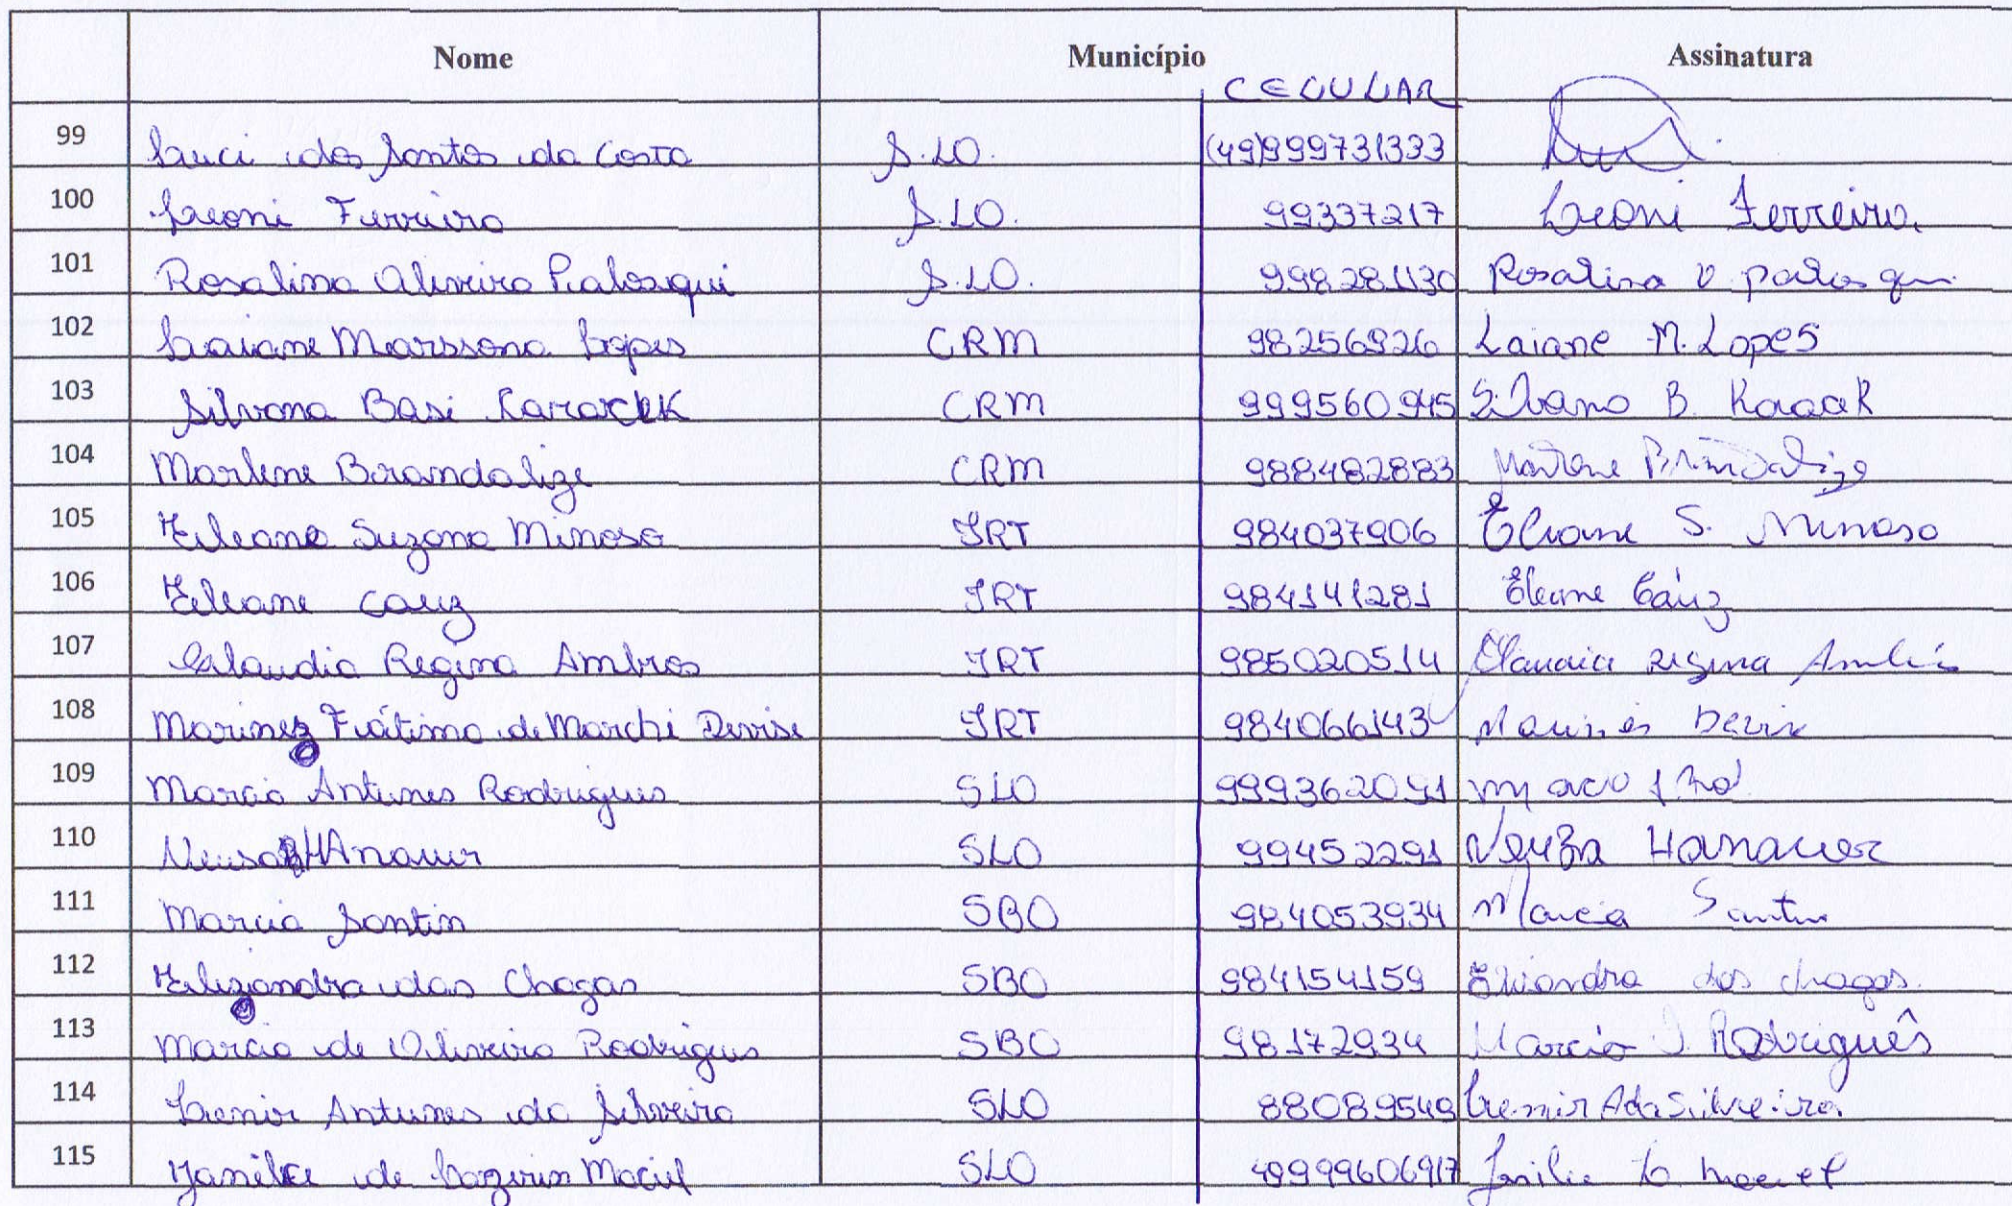 Nome Município Assinatura
CELULAR
99 Luci dos Santos da Costa S.LO. (49)999731333
100 Leoni Ferreira S.LO. 99337217 Leoni Ferreira
101 Rosalina Oliveira S.LO. 998281130 Rosalina O.
102 Laiane Marssona Lopes CRM 98256926 Laiane M. Lopes
103 Silvana Basi CRM 999560945 Silvana B.
104 Marlene Brandalize CRM 988482883 Marlene Brandalize
105 Eleane Suzana Minosa IRT 984037906 S. Minosa
106 Eleane Cauz IRT 984141281 Eleane Cauz
107 Claudia Regina Ambros IRT 985020514 Claudia Regina
108 Marinez Fátima de Marchi Devise IRT 984066143
109 Marcia Antunes Rodrigues SLO 999362091
110 Neusa HAnauer SLO 99452291 Neuza Hanauer
111 Marcia Santin SBO 984053934 Marcia Santin
112 Elizandra das Chagas SBO 984154159 Elisandra das chagas.
113 Marcia de Oliveira Rodrigues SBO 98172934 Marcia Rodriguês
114 Lenir Antunes da Silveira SLO 88089549 Lenir A da Silveira
115 de Maciel SLO 49999606917